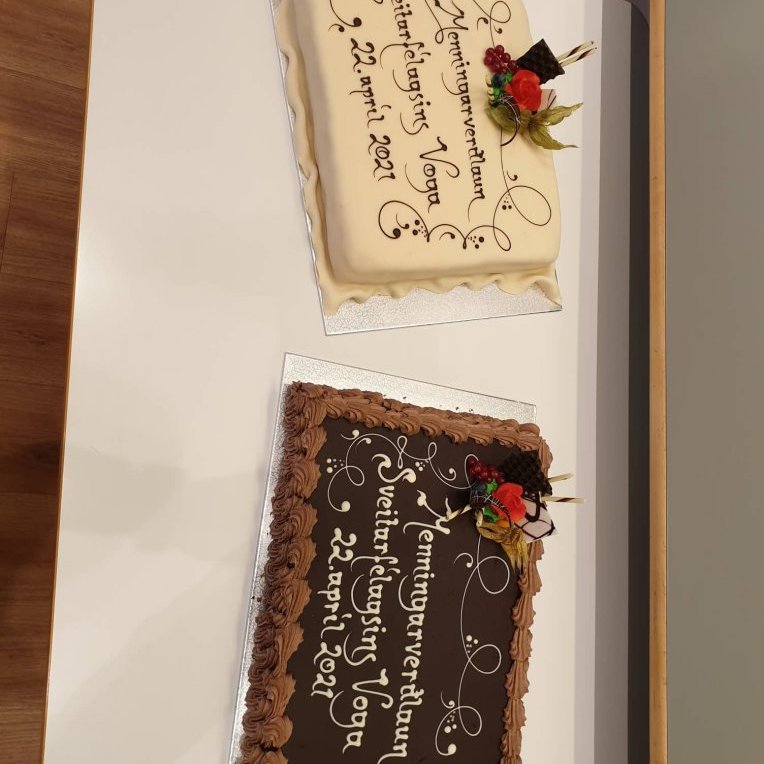 Menningarverðlaun
Sveitarfélagsins Voga
22. apríl 2021
Menningarverðlaun
Sveitarfélagsins Voga
22. apríl 2021